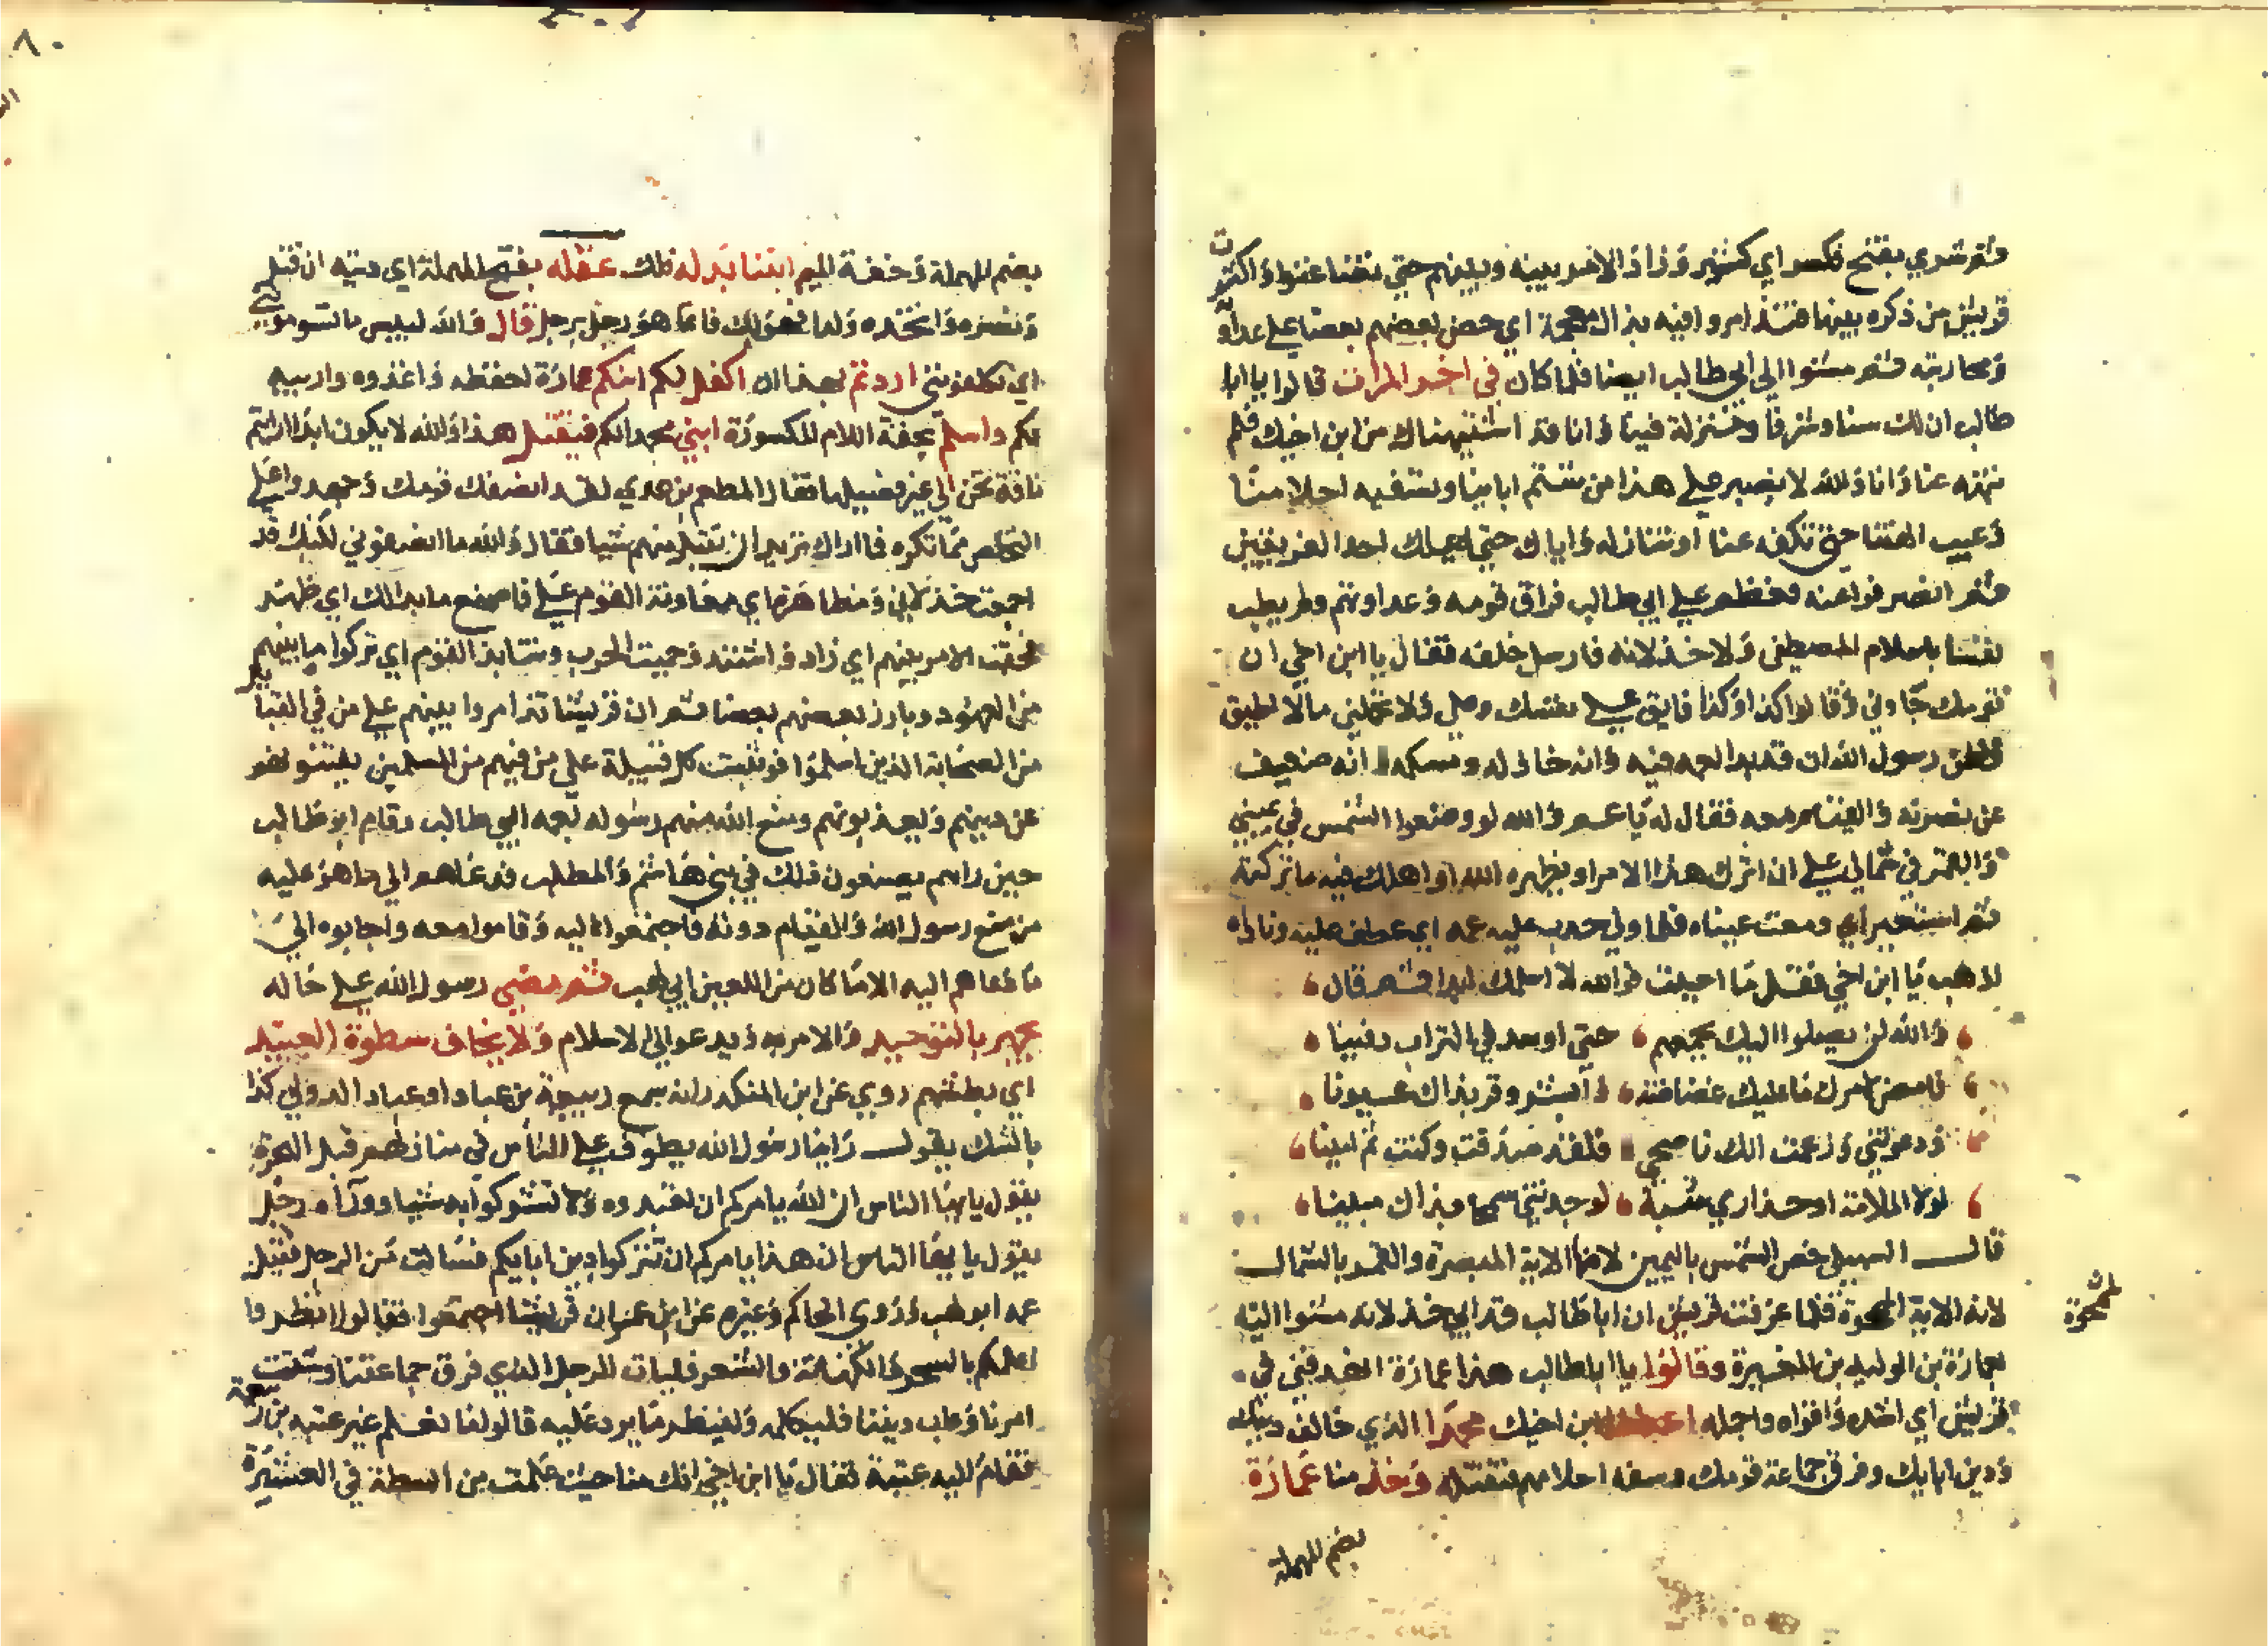 ثم شري بفتح فكسر اي كثر وزاد الامر بينه وبينهم حتي تضاغنوا واكثرت
قريش من ذكره بينها فتذامروا فيه بذال معجمة اي حض بعضهم بعضا علي عداوته
ومحاربته ثم مشوا الي ابي طالب ايضا فلما كان في اخر المرات قالوا يا ابا
طالب ان لك سنا وشرفا ومنزلة فينا وانا قد استنهيناك من ابن اخيك فلم
تنهه عنا وانا والله لا نصبر علي هذا من شتم اباينا وتسفيه احلامنا
وعيب الهتنا حتي تكفه عنا او ننازله واياك حتي يهلك احد الفريقين
ثم انصرفوا عنه فعظم علي ابي طالب فراق قومه وعداوتهم ولم يطب
نفسا باسلام المصطفي ولا خذلانه فارسل خلفه فقال يا ابن اخي ان
قومك جاوني وقالوا كذا وكذا فابق علي نفسك وعلي ولا تحملني مالا اطيق
فظن رسول الله ان قد بدا لعمه فيه وانه خاذله ومسلمه انه ضعيف
عن نصرته والقيام معه فقال له يا عم والله لو وضعوا الشمس في يميني
والقمر في شمالي علي ان اترك هذا الامر او يظهره الله او اهلك فيه ما تركته
ثم استعبر اي دمعت عيناه فلما ولي حدب عليه عمه اي عطف عليه وناداه
اذهب يا ابن اخي فقل ما احببت فوالله لا اسلمك ابدا ثم قال
والله لن يصلوا اليك بجمعهم حتي اوسد في التراب دفينا
فامض لامرك ما عليك غضاضة وابشر وقر بذاك عيونا
ودعوتني وزعمت انك ناصحي فلقد صدقت وكنت ثم امينا
لولا الملامة او حذاري مسبة لوجدتني سمحا بذاك مبينا
قال السهيلي خص الشمس باليمين لانها الاية المبصرة والقمر بالشمال
لانه الاية الممحوة فلما عرفت قريش ان ابا طالب قد ابي خذلانه مشوا اليه
الممحوة
بعمارة بن الوليد بن المغيرة وقالوا يا ابا طالب هذا عمارة انهد فتي في
قريش اي اشده واقواه واجمله اعطنا ابن اخيك محمدا الذي خالف دينك
ودين ابايك وفرق جماعة قومك وسفه احلامهم فنقتله وخذ منا عمارة
بضم المهملة
٨٠
بضم المهملة وخفة الميم ابننا بدله فلك عقله بفتح المهملة اي ديته ان قتل
ونصره واتخذه ولدا فهو لك فانما هو رجل برجل قال والله لبيس ما تسومونني
اي تكلفونني اردتم بهذا ان اكفل لكم ابنكم عمارة لحفظه واغذوه واربيه
لكم واسلم بخفة اللام المكسورة ابني محمدا لكم فيقتل هذا والله لا يكون ابدا ارايتم
ناقة تحن الي غير فصيلها فقال المطعم بن عدي لقد انصفك قومك وجهدوا علي
التخلص مما تكره فما اراك تريد ان تقبل منهم شيا فقال والله ما انصفوني لكنك قد
اجمعت خذلاني ومظاهرة اي معاونة القوم علي فاصنع ما بدا لك اي ظهر
فحقب الامر بينهم اي زاد واشتد وحميت الحرب وتنابذ القوم اي تركوا ما بينهم
من العهود وبارز بعضهم بعضا ثم ان قريشا تذامروا بينهم علي من في القبايل
من الصحابة الذين اسلموا فوثبت كل قبيلة علي من فيهم من المسلمين يفتنونهم
عن دينهم ويعذبونهم ومنع الله منهم رسوله بعمه ابي طالب وقام ابو طالب
حين راهم يصنعون ذلك في بني هاشم والمطلب فدعاهم الي ما هو عليه
من منع رسول الله والقيام دونه فاجتمعوا اليه وقاموا معه واجابوه الي
ما دعاهم اليه الا ما كان من اللعين ابي لهب ثم مضي رسول الله علي حاله
يجهر بالتوحيد والامر به ويدعو الي الاسلام ولا يخاف سطوة العبيد
اي بطشهم روي عن ابن المنكدر انه سمع ربيعة بن عباد او عباد الدولي كذا
بالشك يقول راينا رسول الله يطوف علي الناس في منازلهم قبل الهجرة
يقول يا ايها الناس ان الله يامركم ان تعبدوه ولا تشركوا به شيا ووراه رجل
يقول يا ايها الناس ان هذا يامركم ان تتركوا دين ابايكم فسالت من الرجل فقيل
عمه ابو لهب وروي الحاكم وغيره عن ابن عمر ان قريشا اجتمعوا فقالوا انظروا
اعلمكم بالسحر والكهانة والشعر فليات الرجل الذي فرق جماعتنا وشتت
امرنا وعاب ديننا فليكلمه ولينظر ما يرد عليه قالوا ما نعلم غير عتبة بن ربيعة
فقام اليه عتبة فقال يا ابن اخي انك منا حيث علمت من السطة في العشيرة